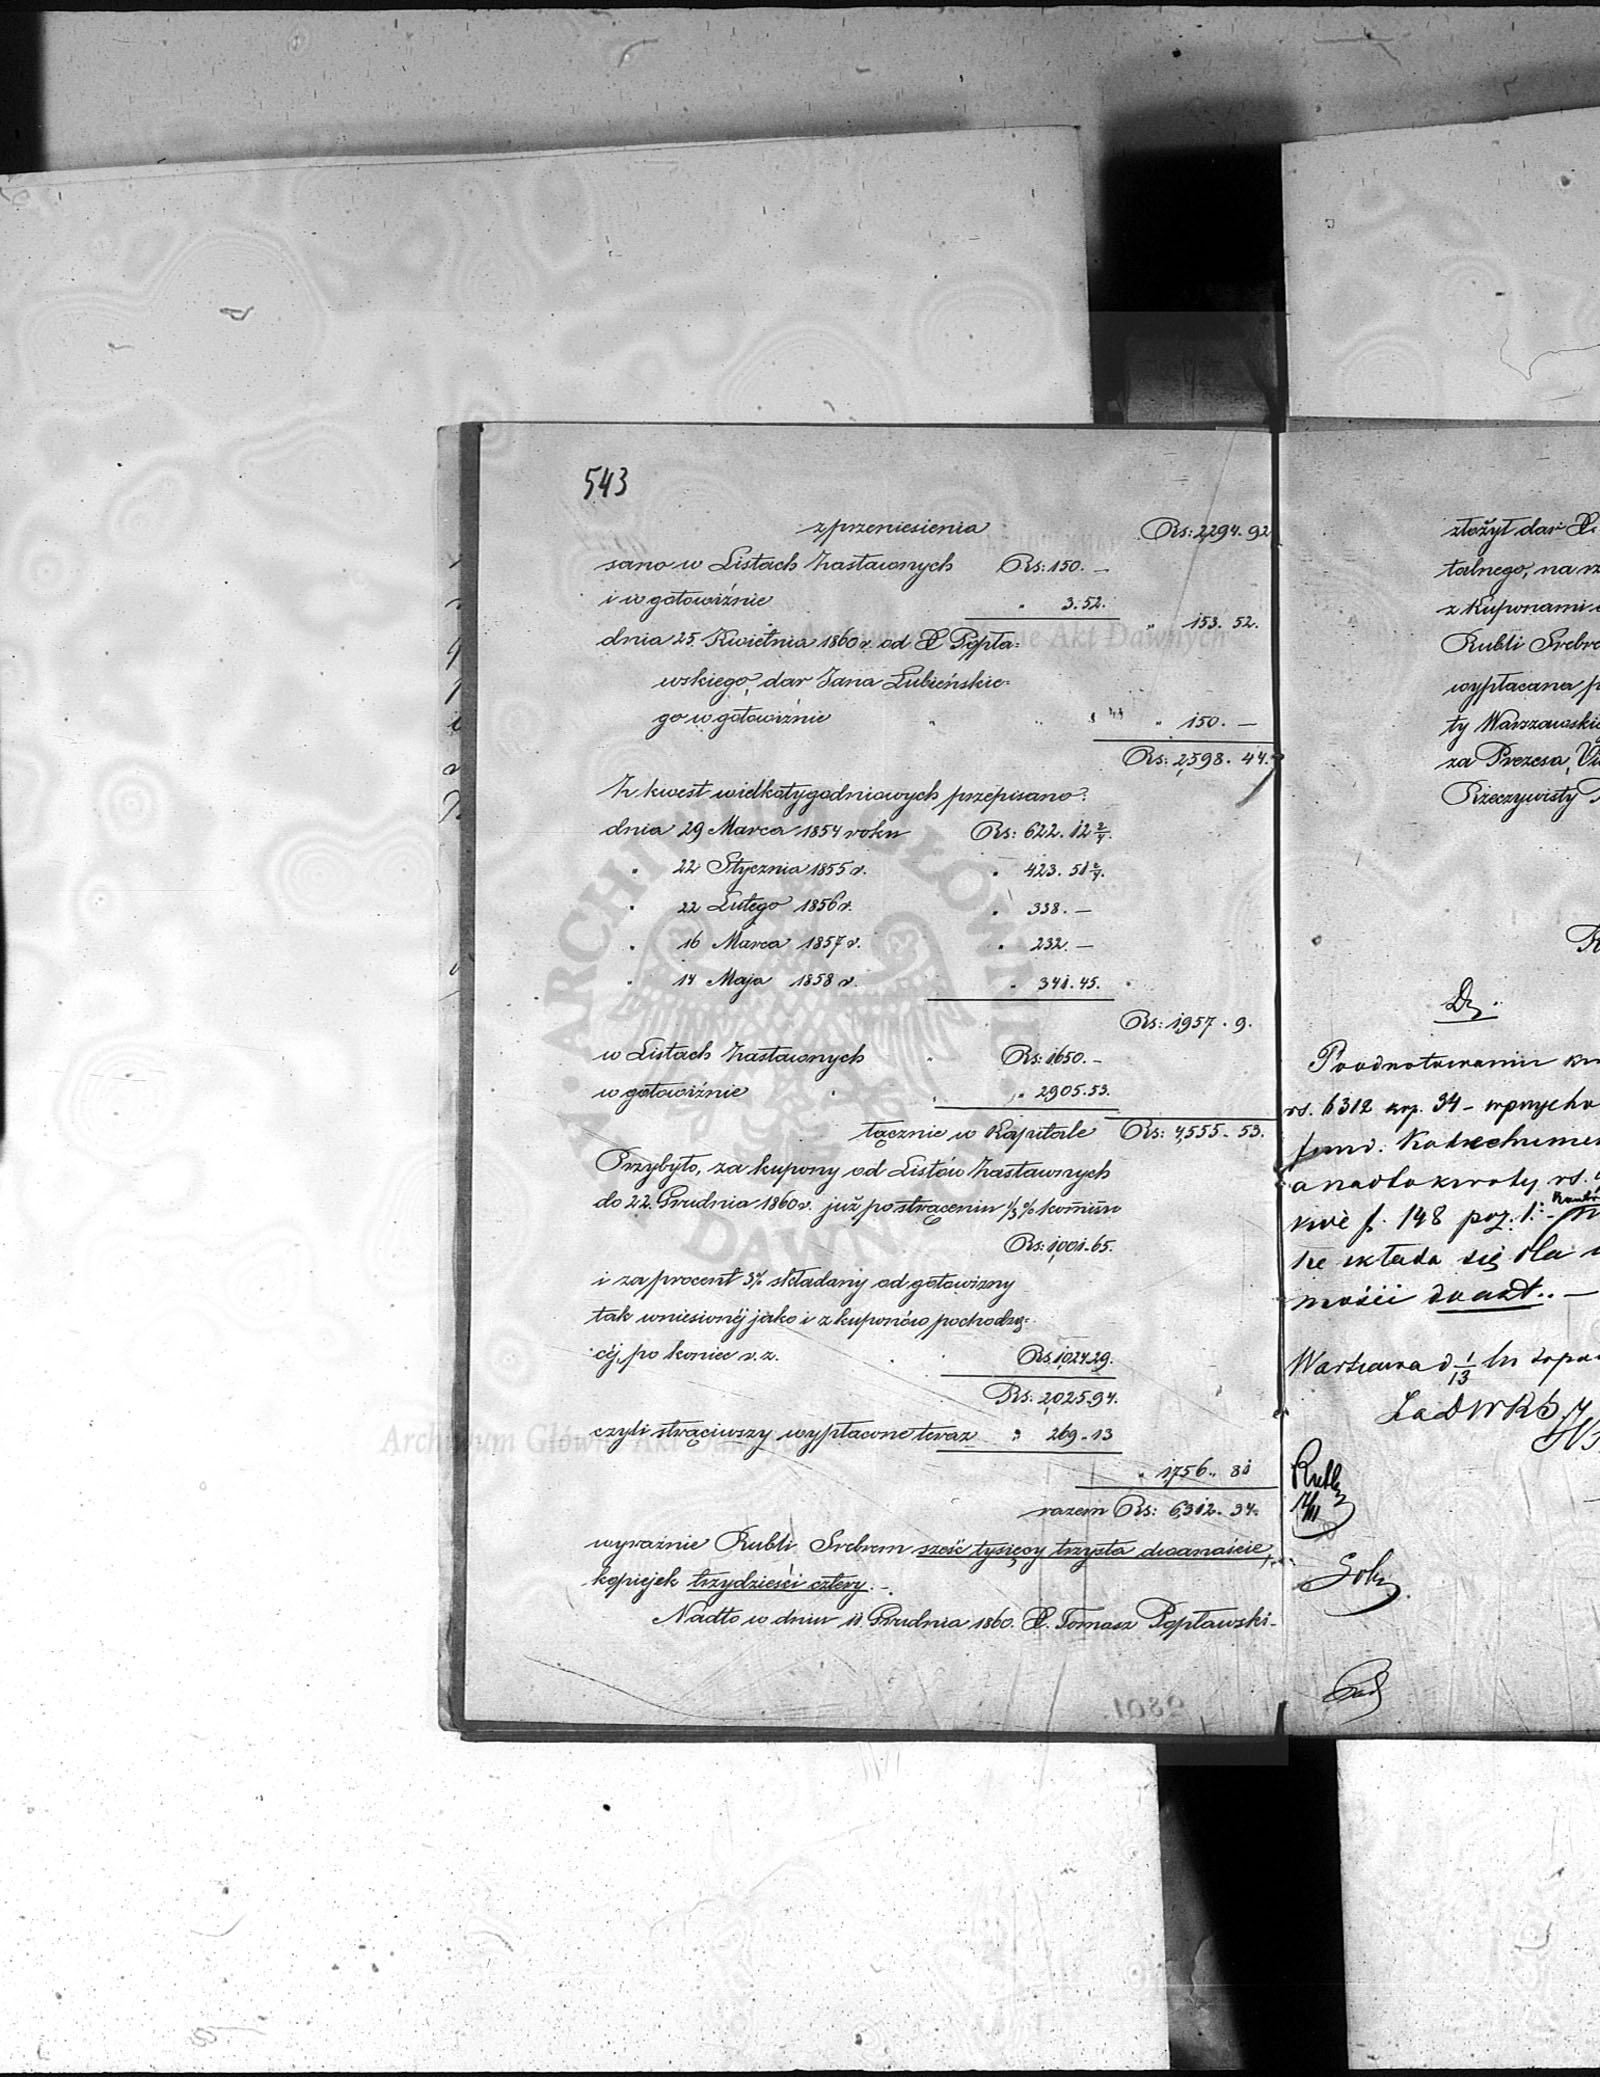 543
z przeniesienia Rs: 2,294. 92
sano w Listach Zastawnych Rs: 150. —
i w gotowiźnie " 3. 52.
" 153. 52.
dnia 25 Kwietnia 1860 r. od X Popła=
wskiego, dar Jana Lubieńskie=
go w gotowiźnie " " " 150. —
Rs: 2,598. 44.
Z kwest wielkotygodniowych przepisano:
dnia 29 Marca 1854 roku Rs: 622. 12 2/4.
" 22 Stycznia 1855 r. " 423. 51 2/4.
" 22 Lutego 1856 r. " 338. —
" 16 Marca 1857 r. " 232. —
" 14 Maja 1858 r. " 341. 45.
Rs: 1957. 9.
w Listach Zastawnych " Rs: 1650. —
w gotowiźnie " " 2905. 53.
łącznie w Kapitale Rs: 4,555. 53.
Przybyło, za kupony od Listów Zastawnych
do 22 Grudnia 1860 r. już po strąceniu 1/3 % komism
Rs: 1,001. 65.
i za procent 3% składany od gotowizny
tak wniesionéj jako i z kuponów pochodzą=
céj, po koniec r. z. Rs. 1,024 29.
Rs: 2,025. 94.
czyli strąciwszy wypłacone teraz " 269. 13
" 1,756. 81
razem Rs: 6,312. 34.
wyraźnie Rubli Srebrem sześć tysięcy trzysta dwanaście,
kopiejek trzydzieści cztery. —
Nadto w dniu 11 Grudnia 1860. X. Tomasz Popławski
złożył dar X.
talnego, na
z Kuponami
Rubli Srebre
wypłacana
ty Warszawskie
za Prezesa,
Rzeczywisty
Dz.
Poodnotowaniu
rs. 6312 kop. 34 – w przycho
fund. Katechumen
a nadto kwoty rs.
kwie f. 148 poz. 1.
że układa się dla
mości do akt. —
Warszawa d 1/13
Archiwum Główne Akt Dawnych
ARCHIWUM GŁÓWNE AKT DAWNYCH